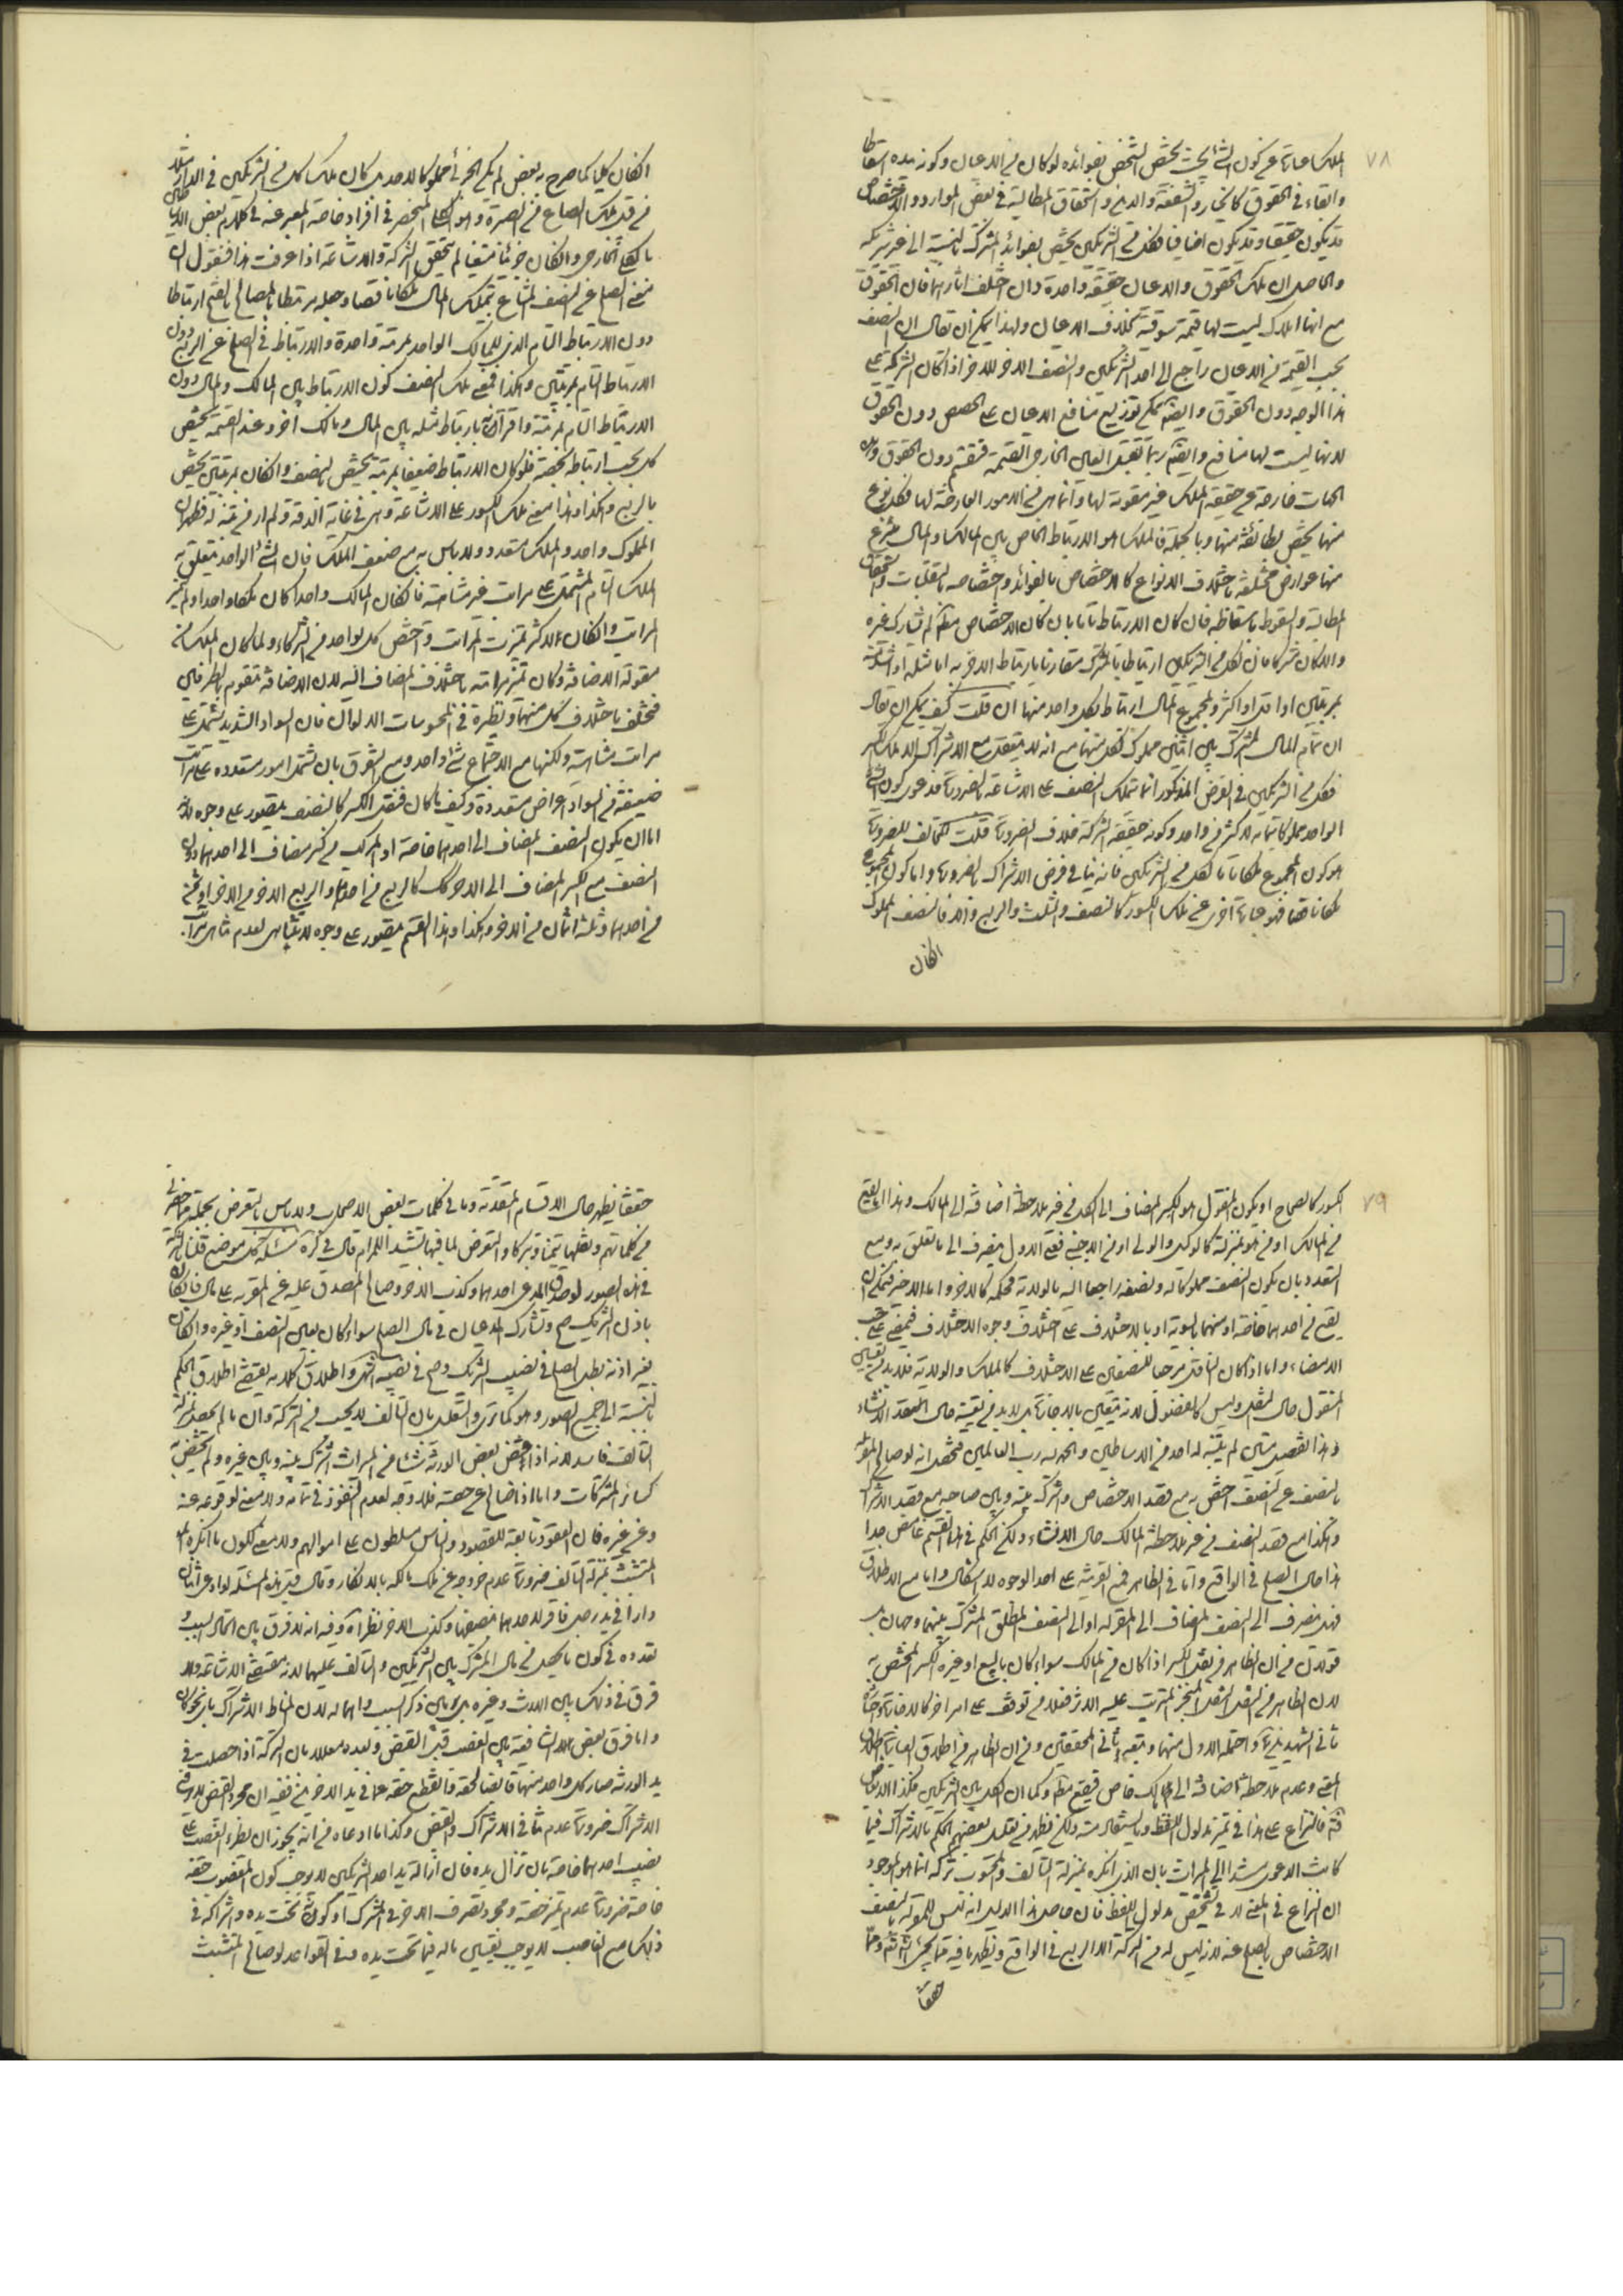 ٧٨
الملك عبارة عن كون الشئ بحيث يختص الشخص بفوائده لو كان من الاعيان وكونه بيده اسقاطا
وابقاء فى الحقوق كالخيار والشفعة والدين واستحقاق المطالبة فى بعض الموارد والاختصاص
قد يكون حقيقيا وقد يكون اضافيا فكل من الشريكين يختص بفوائد المشترك بالنسبة الى غير شريكه
والحاصل ان ملك الحقوق والاعيان حقيقة واحدة وان اختلف اثارهما فان الحقوق
مع انها املاك ليست لها قيمة سوقية بخلاف الاعيان ولهذا يمكن ان يقال ان النصف
بحسب القيمة من الاعيان راجع الى احد الشريكين والنصف الاخر للاخر اذا كان الشركة على
هذا الوجه دون الحقوق وايضا يمكن توزيع منافع الاعيان على الحصص دون الحقوق
لانها ليست لها منافع وايضا ربما تقبل العين الخارجى القسمة فتقسم دون الحقوق وهذه
الجهات خارجة عن حقيقة الملك غير مقومة لها وانما هى من الامور العارضة لها فكل نوع
منها يختص بطائفة منها وبالجملة فالملك هو الارتباط الخاص بين المالك والمال ينتزع
منها عوارض مختلفة باختلاف الانواع كالاختصاص بالفوائد واختصاصه بالتقلبات واستحقاق
المطالبة والسقوط باسقاطه فان كان الارتباط تاما بان كان الاختصاص مطلقا لم يشارك غيره
والا كان شركا فان لكل من الشريكين ارتباطا بالمشترك مقارنا بارتباط الاخر به اما مثله او اشد منه
بمرتبتين او اقل او اكثر ولمجموع المال ارتباط بكل واحد منهما ان قلت كيف يمكن ان يقال
ان تمام المال المشترك بين اثنين مملوك لكل منهما مع انه لا يتعقل مع الاشتراك الا ملك الكسر
فكل من الشريكين فى الفرض المذكور انما يملك النصف على الاشاعة بالضرورة فدعوى كون الشئ
الواحد مملوكا بتمامه لاكثر من واحد وكونه حقيقة الشركة خلاف الضرورة قلت المخالف للضرورة
هو كون المجموع ملكا تاما لكل من الشريكين فانه ينافى فرض الاشتراك بالضرورة واما كون المجموع
ملكا ناقصا فهو عبارة اخرى عن ملك الكسور كالنصف والثلث والربع وغيرها فالنصف المملوك
الكان
ان كان كليا كما صرح به بعض لم يكن الجزئى مملوكا لاحد بل كان ملك كل من الشريكين فى الدار مثلا
من قبيل ملك الصاع من الصبرة وهو الكلى المنحصر فى افراد خاصة المعبر عنه فى كلام بعض
بالكلى الخارجى وان كان جزئيا متعينا لم يتحقق الشركة والاشاعة اذا عرفت هذا فنقول ان
معنى الصلح على النصف المشاع تمليك المال ملكا ناقصا وجعله مرتبطا بالمصالح بالقسم ارتباطا
دون الارتباط التام الذى للمالك الواحد بمرتبة واحدة والارتباط فى الصلح عن الربع دون
الارتباط التام بمرتبتين وهكذا فمعنى ملك النصف كون الارتباط بين المالك والمال دون
الارتباط التام بمرتبة واقترانه بارتباط مثله بين المال ومالك اخر وعند القسمة يختص
كل بحسب ارتباطه بحصته فلو كان الارتباط ضعيفا بمرتبة يختص بالنصف وان كان بمرتبتين يختص
بالربع وهكذا وهذا معنى ملك الكسور على الاشاعة وهى فى غاية الدقة ولم ار من تنبه له فظهر ان
المملوك واحد والملك متعدد ولا باس به مع ضعف الملك فان الشئ الواحد يتعلق به
الملك التام المشتمل على مراتب غير متناهية فان كان المالك واحدا كان ملكا واحدا ولم يتميز
المراتب وان كان الاكثر تميزت المراتب واختص كل بواحد من الشركاء ولما كان الملك من
مقولة الاضافة وكان تميز مراتبه باختلاف المضاف اليه لان الاضافة تتقوم بالطرفين
فتختلف باختلاف كل منهما ونظيره فى المحسوسات الالوان فان السواد الشديد يشتمل على
مراتب متناهية ولكنها مع الاجتماع شئ واحد ومع التفرق بان يشتمل امور متعددة على مراتب
ضعيفة من السواد اعراض متعددة وكيف كان فنقل الكسر كالنصف يتصور على وجوه لانه
اما ان يكون النصف المضاف الى احدهما خاصة او المركب من كسر مضاف الى احدهما دون
النصف مع الكسر المضاف الى الاخر كالربع من احدهما والربع الاخر من الاخر او ثمن
من احدهما وثلثة اثمان من الاخر وهكذا وهذا القسم يتصور على وجوه لا تتناهى لعدم تناهى مراتب
٧٩
الكسور كالصحاح او يكون المنقول هو الكسر المضاف الى الكل من غير ملاحظة اضافته الى المالك وهذا اما يقع
من المالك او من هو بمنزلة كالوكيل والولى او من الاجنبى ففى الاول ينصرف الى ما تعلق به ومع
التعدد بان يكون النصف مملوكا له ونصفه راجعا اليه بالولاية فحكمه كالاخر واما الاخير فيمكن ان
يقع من احدهما خاصة او منهما بالسوية او بالاختلاف على اختلاف وجوه الاختلاف فيمضى على حسب
الامضاء واما اذا كان الناقل مرجعا للنصفين على الاختلاف كالملك والولاية فلا بد من تعيين
المنقول حال النقل وليس كالفضولى لانه يتعين بالاجازة بل لا بد من تعيينه حال العقد الانشاء
وهذا تفصيل متين لم يتنبه له احد من الاساطين والحمد لله رب العالمين فتحصل انه لو صالح المقر له
بالنصف على النصف اختص به مع قصد الاختصاص واشترك بينه وبين صاحبه مع قصد الاشتراك
وهكذا مع قصد النصف من غير ملاحظة المالك حال الانشاء ولكن الحكم فى هذا القسم غامض جدا
هذا حال الصلح فى الواقع واما فى الظاهر فمع القرينة على احد الوجوه لا اشكال واما مع الاطلاق
فهل ينصرف الى النصف المضاف الى المقر له او الى النصف المطلق المشترك بينهما وجهان بل
قولان من ان الظاهر من نقل الكسر اذا كان من المالك سواء كان بالبيع او غيره الكسر المختص به
لان الظاهر من النقل النقل المنجز المترتب عليه الاثر فلا يتوقف على امر اخر كالاجازة واختاره
ثانى الشهيدين واحتمله الاول منهما وتبعه ثانى المحققين ومن ان الظاهر من اطلاق العبارة اطلاق
المعنى وعدم ملاحظة اضافته الى مالك خاص فيقع مطلقا وكما ان الكل بين الشريكين فكذا الابعاض
فالنزاع على هذا فى تميز مدلول اللفظ ولا يستحال منه ولكن يظهر من تعليل بعضهم الحكم بالاشتراك فيما
كانت الدعوى مستندا الى الميراث بان الذى انكره بمنزلة التالف والمحسوب تركة انما هو الموجود
ان النزاع فى المعنى لا فى تشخيص مدلول اللفظ فان حاصل هذا الدليل انه ليس للمقر له بالنصف
الاختصاص بالصلح عنه لانه ليس له من التركة الا الربع فى الواقع ونظهر ما فيه مما يجئ انشاء الله وما
حققنا
حققنا يظهر حال الاقسام المتقدمة وما فى كلمات بعض الاصحاب ولا باس بالتعرض لجملة مما حضرنى
من كلماتهم ونقلها تيمنا وتبركا والتعرض لما فيها تشييدا للمرام قال فى كره مسئلة كل موضع قلنا بالشركة
فى هذه الصور لو صدق المدعى احدهما وكذب الاخر وصالح المصدق عليه عن المقر به على مال فان كان
باذن الشريك صح وتشارك المدعيان فى مال الصلح سواء كان بعين النصف او غيره وان كان
بغير اذنه بطل الصلح فى نصيب الشريك وصح فى نصيبه انتهى واطلاق كلامه يقتضى اطلاق الحكم
بالنسبة الى جميع الصور وهو كما ترى والتعليل بان التالف لا يحسب من التركة وان ما لم يحصل بمنزلة
التالف فاسد لانه اذا قبض بعض الورثة شيئا من الميراث اشترك بينه وبين غيره ولم يختص به
كسائر المشتركات واما اذا صالح عن حصته فلا وجه لعدم النفوذ فى تمامه ولا معنى لوقوعه عنه
وعن غيره فان العقود تابعة للقصود والناس مسلطون على اموالهم ولا معنى لكون ما انكره
المتشبث بمنزلة التالف ضرورة عدم خروجه عن ملك مالكه بالانكار وقال قبل هذه المسئلة لو ادعى اثنان
دارا فى يد رجل فاقر لاحدهما بنصفها وكذب الاخر نظر اه وفيه انه لا فرق بين اتحاد السبب و
تعدده فى كون ما يحصل من مال المشترك بين الشريكين والتالف عليهما لانه مقتضى الاشاعة ولا
فرق فى ذلك بين الارث وغيره بل بين ذكر السبب واهماله لان المناط الاشتراك باى نحو كان
واما فرق بعض الشافعية بين الغصب قبل القبض وبعده معللا بان التركة اذا حصلت فى
يد الورثة صار كل واحد منهما قابضا لحقه فانقطع حقه عما فى يد الاخر ففيه ان مجرد القبض لا يرفع
الاشتراك ضرورة عدم تنافى الاشتراك والقبض وكذا ما ادعاه من انه يجوز ان يطرء الغصب على
نصيب احدهما خاصة بان تزال يده فان ازالة يد احد الشريكين لا يوجب كون المغصوب حقه
خاصة ضرورة عدم تميز حصته ومجرد تصرف الاخر فى المشترك او كونه تحت يده واشتراكه فى
ذلك مع الغاصب لا يوجب تعيين ماله فيما تحت يده وفى القواعد لو صالح المتشبث